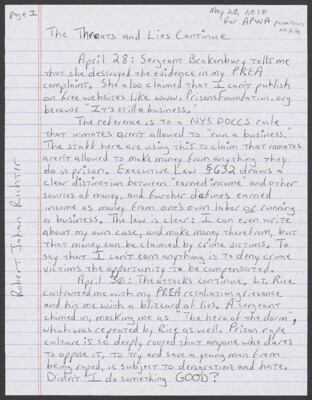 Page 1
May 20, 2018
for APWA permissions
on file
The Threats and Lies Continue
April 28: Sergeant Brakenbury tells me
that she destroyed the evidence in my PREA
complaint. She also claimed that I can't publish
on free websites like www.Prisonsfoundation.org
because "It's still a business."
The reference is to a NYS DOCCS rule
that inmates aren't allowed to "run a business."
The staff here are using this to claim that inmates
aren't allowed to make money from anything they
do in prison. Executive Law §632 draws a
clear distinction between "earned income" and other
sources of money, and further defines earned
income as money from one's own labor or running
a business. The law is clear: I can even write
about my own case, and make money therefrom, but
that money can be claimed by crime victims. To
say that I can't earn anything is to deny crime
victims the opportunity to be compensated.
April 30: The attacks continue. Lt. Rice
confronted me with my PREA retaliation grievance
and hit me with a blizzard of lies. A sergeant
chimed in, mocking me as "The hero of the dorm",
which was repeated by Rice as well. Prison rape
culture is so deeply rooted that anyone who dares
to oppose it, to try and save a young man from
being raped, is subject to denigration and hate.
Didn't I do something GOOD?
Robert Johan Richter